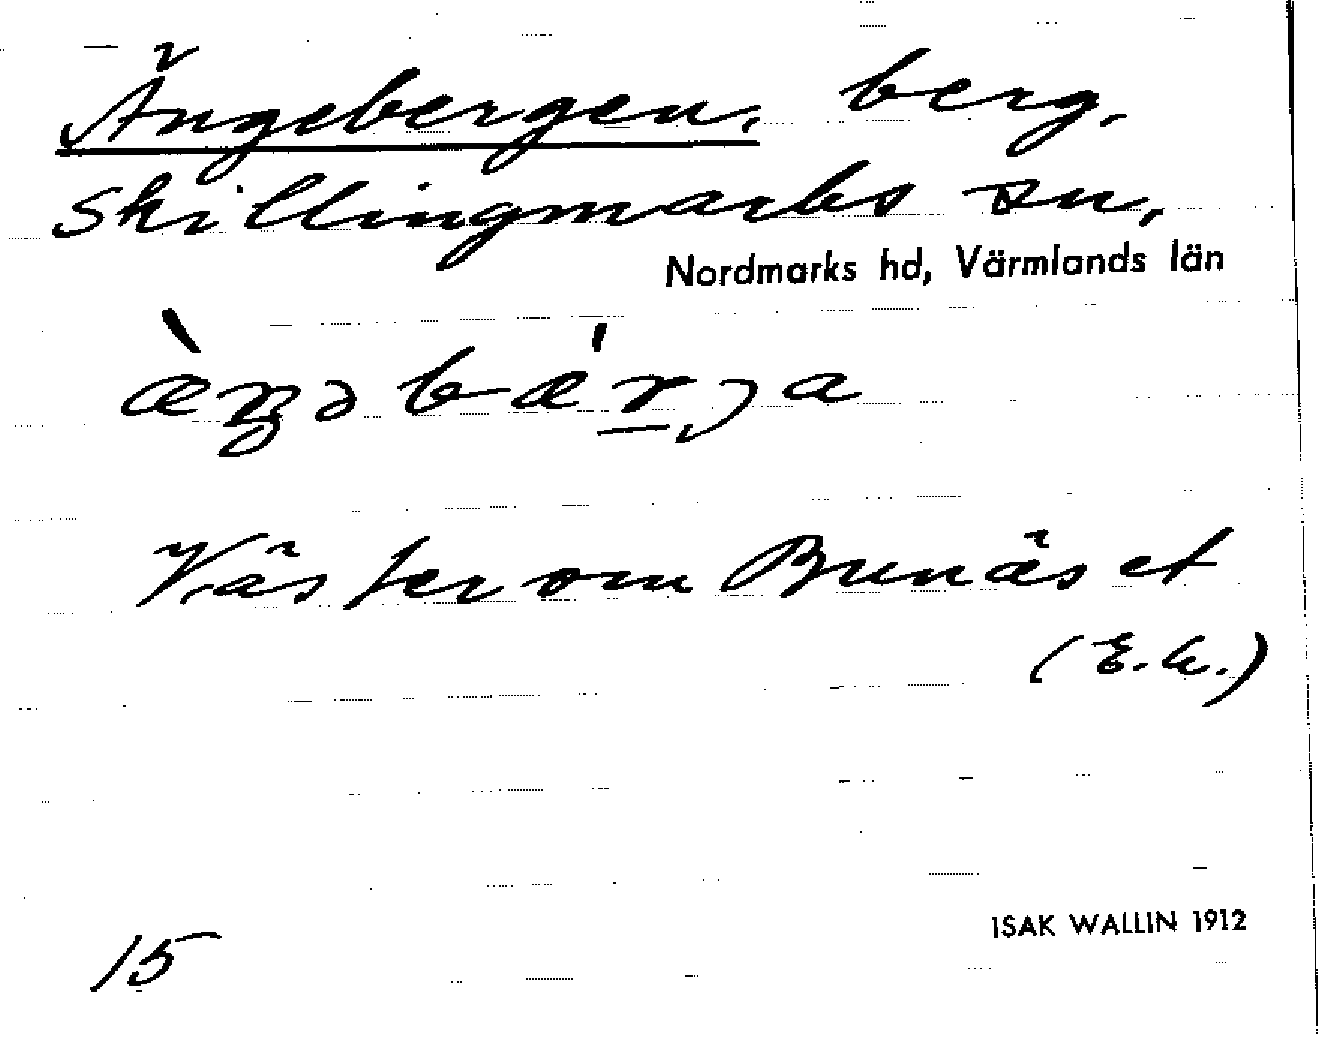 Ängebergen, berg.
Skillingmarks sn,
Nordmarks hd, Värmlands län
Väster om Brunäset
ISAK WALLIN 1912
15